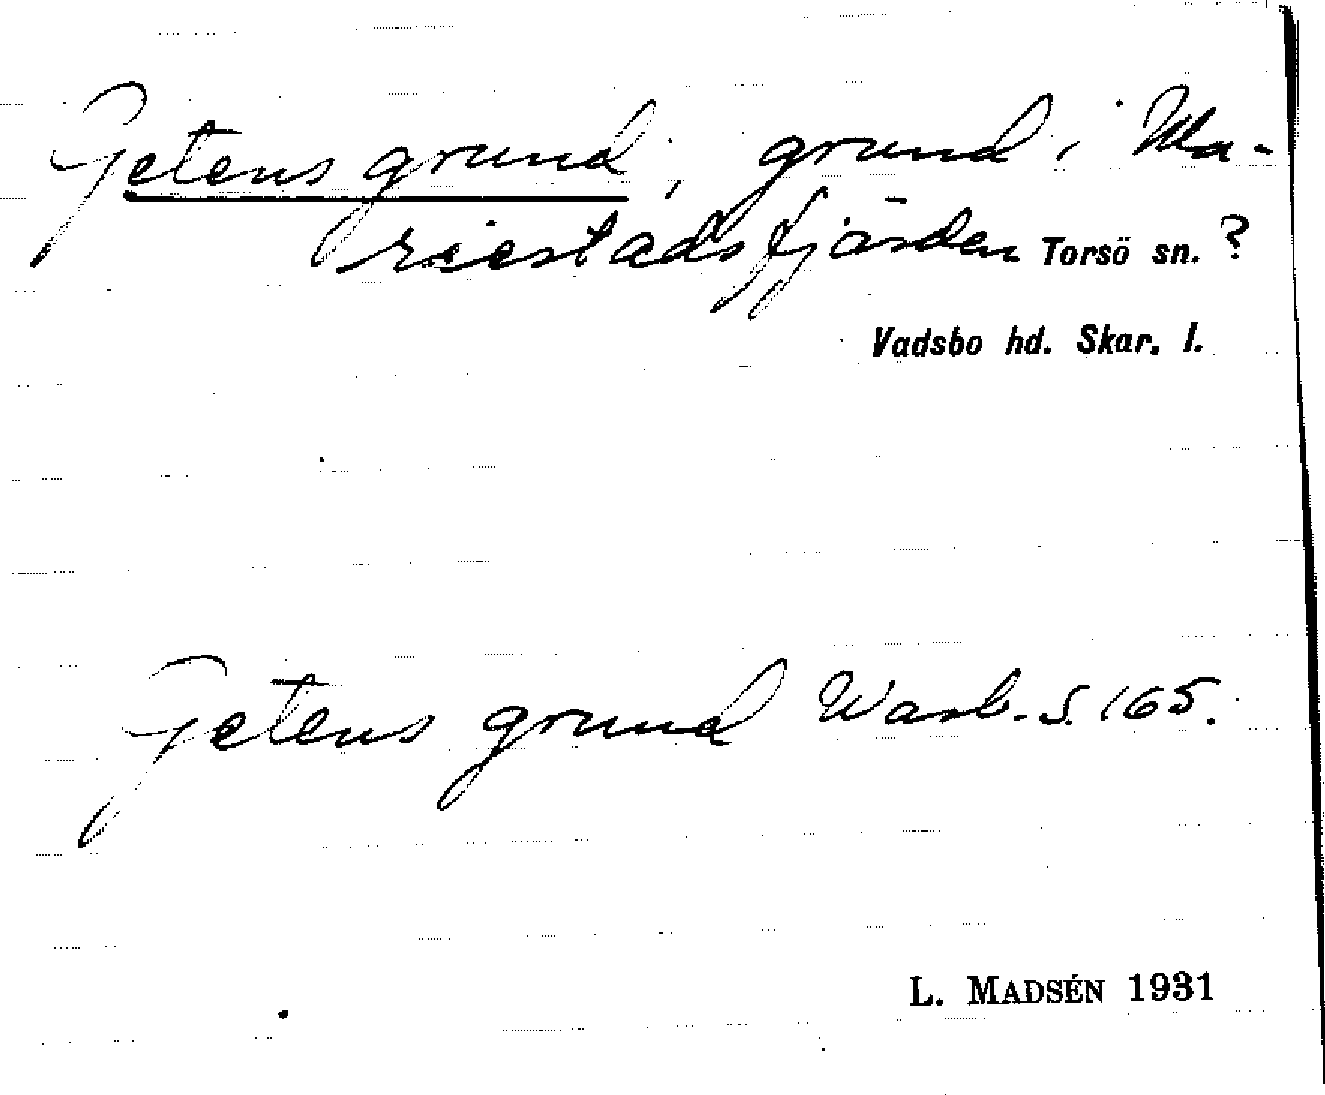 Getens grund, grund i Ma-
riestadsfjärden Torsö sn. ?
Vadsbo hd. Skar. l.
Getens grund Warb. S. 165.
L. MADSÉN 1931